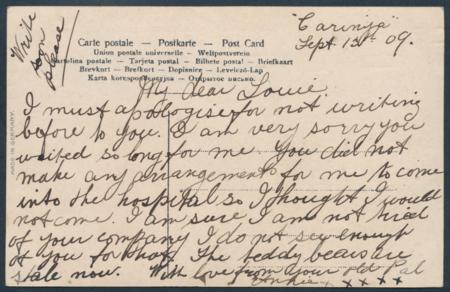 Write
soon
please
"Carinya"
Sept 13th 09.
Carte postale — Postkarte — Post Card
Union postale universelle — Weltpostverein
Cartolina postale — Tarjeta postal — Bilhete postal — Briefkaart
Brevkort — Brefkort — Dopisnice — Levelező-Lap
Карта корреспонденція — Открытое письмо.
MADE IN GERMANY.
My dear Louie.
I must apologise for not writing
before to you. I am very sorry you
waited so long for me. You did not
make any arrangements for me to come
into the hospital so I thought I would
not come. I am sure I am not tired
of your company I do not see enough
of you for that. The teddy bears are
stale now. With love from your old Pal
x x x x